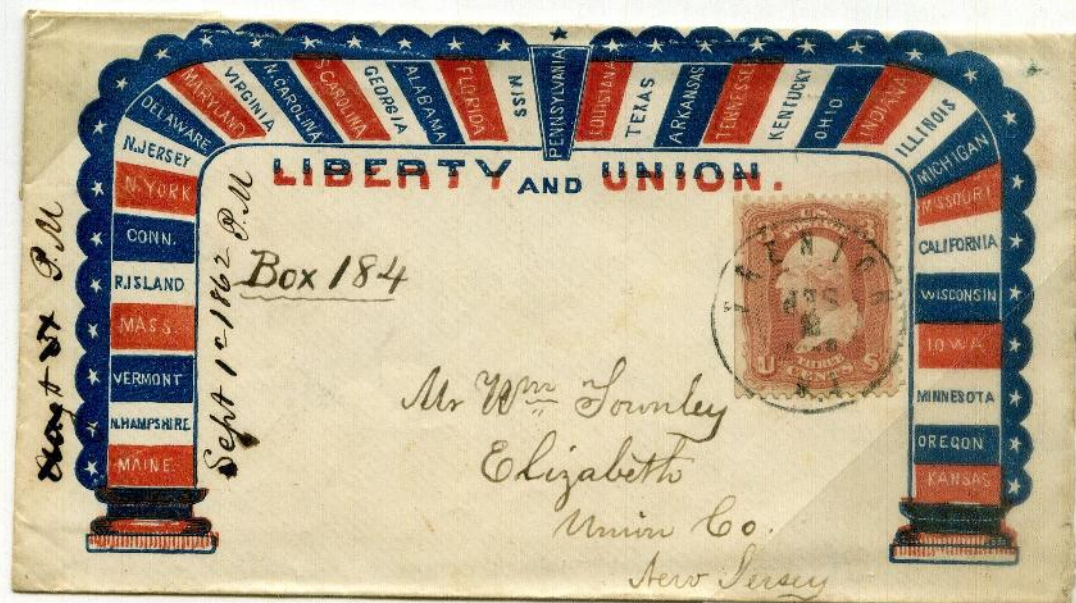 MAINE.
N.HAMPSHIRE
VERMONT
MASS.
R.ISLAND
CONN.
N.YORK
N.JERSEY
DELAWARE
MARYLAND
VIRGINIA
N.CAROLINA
S.CAROLINA
GEORGIA
ALABAMA
FLORIDA
MISS
PENNSYLVANIA
LOUISIANA
TEXAS
ARKANSAS
TENNESSEE
KENTUCKY
OHIO
INDIANA
ILLINOIS
MICHIGAN
MISSOURI
CALIFORNIA
WISCONSIN
IOWA
MINNESOTA
OREGON
KANSAS
LIBERTY AND UNION.
P.M
Sept 1st 1862 P.M
Box 184
U S
THREE
CENTS
SEP
N.J
Mr Wm Townley
Elizabeth
Union Co.
New Jersey